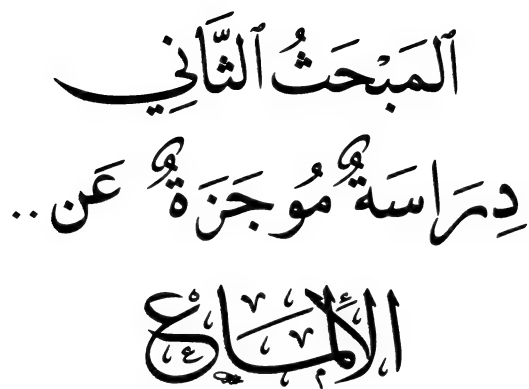 ٱلمَبْحَثُ ٱلثَّانِي
دِرَاسَةٌ مُوجَزَةٌ عَن ..
الإلماع